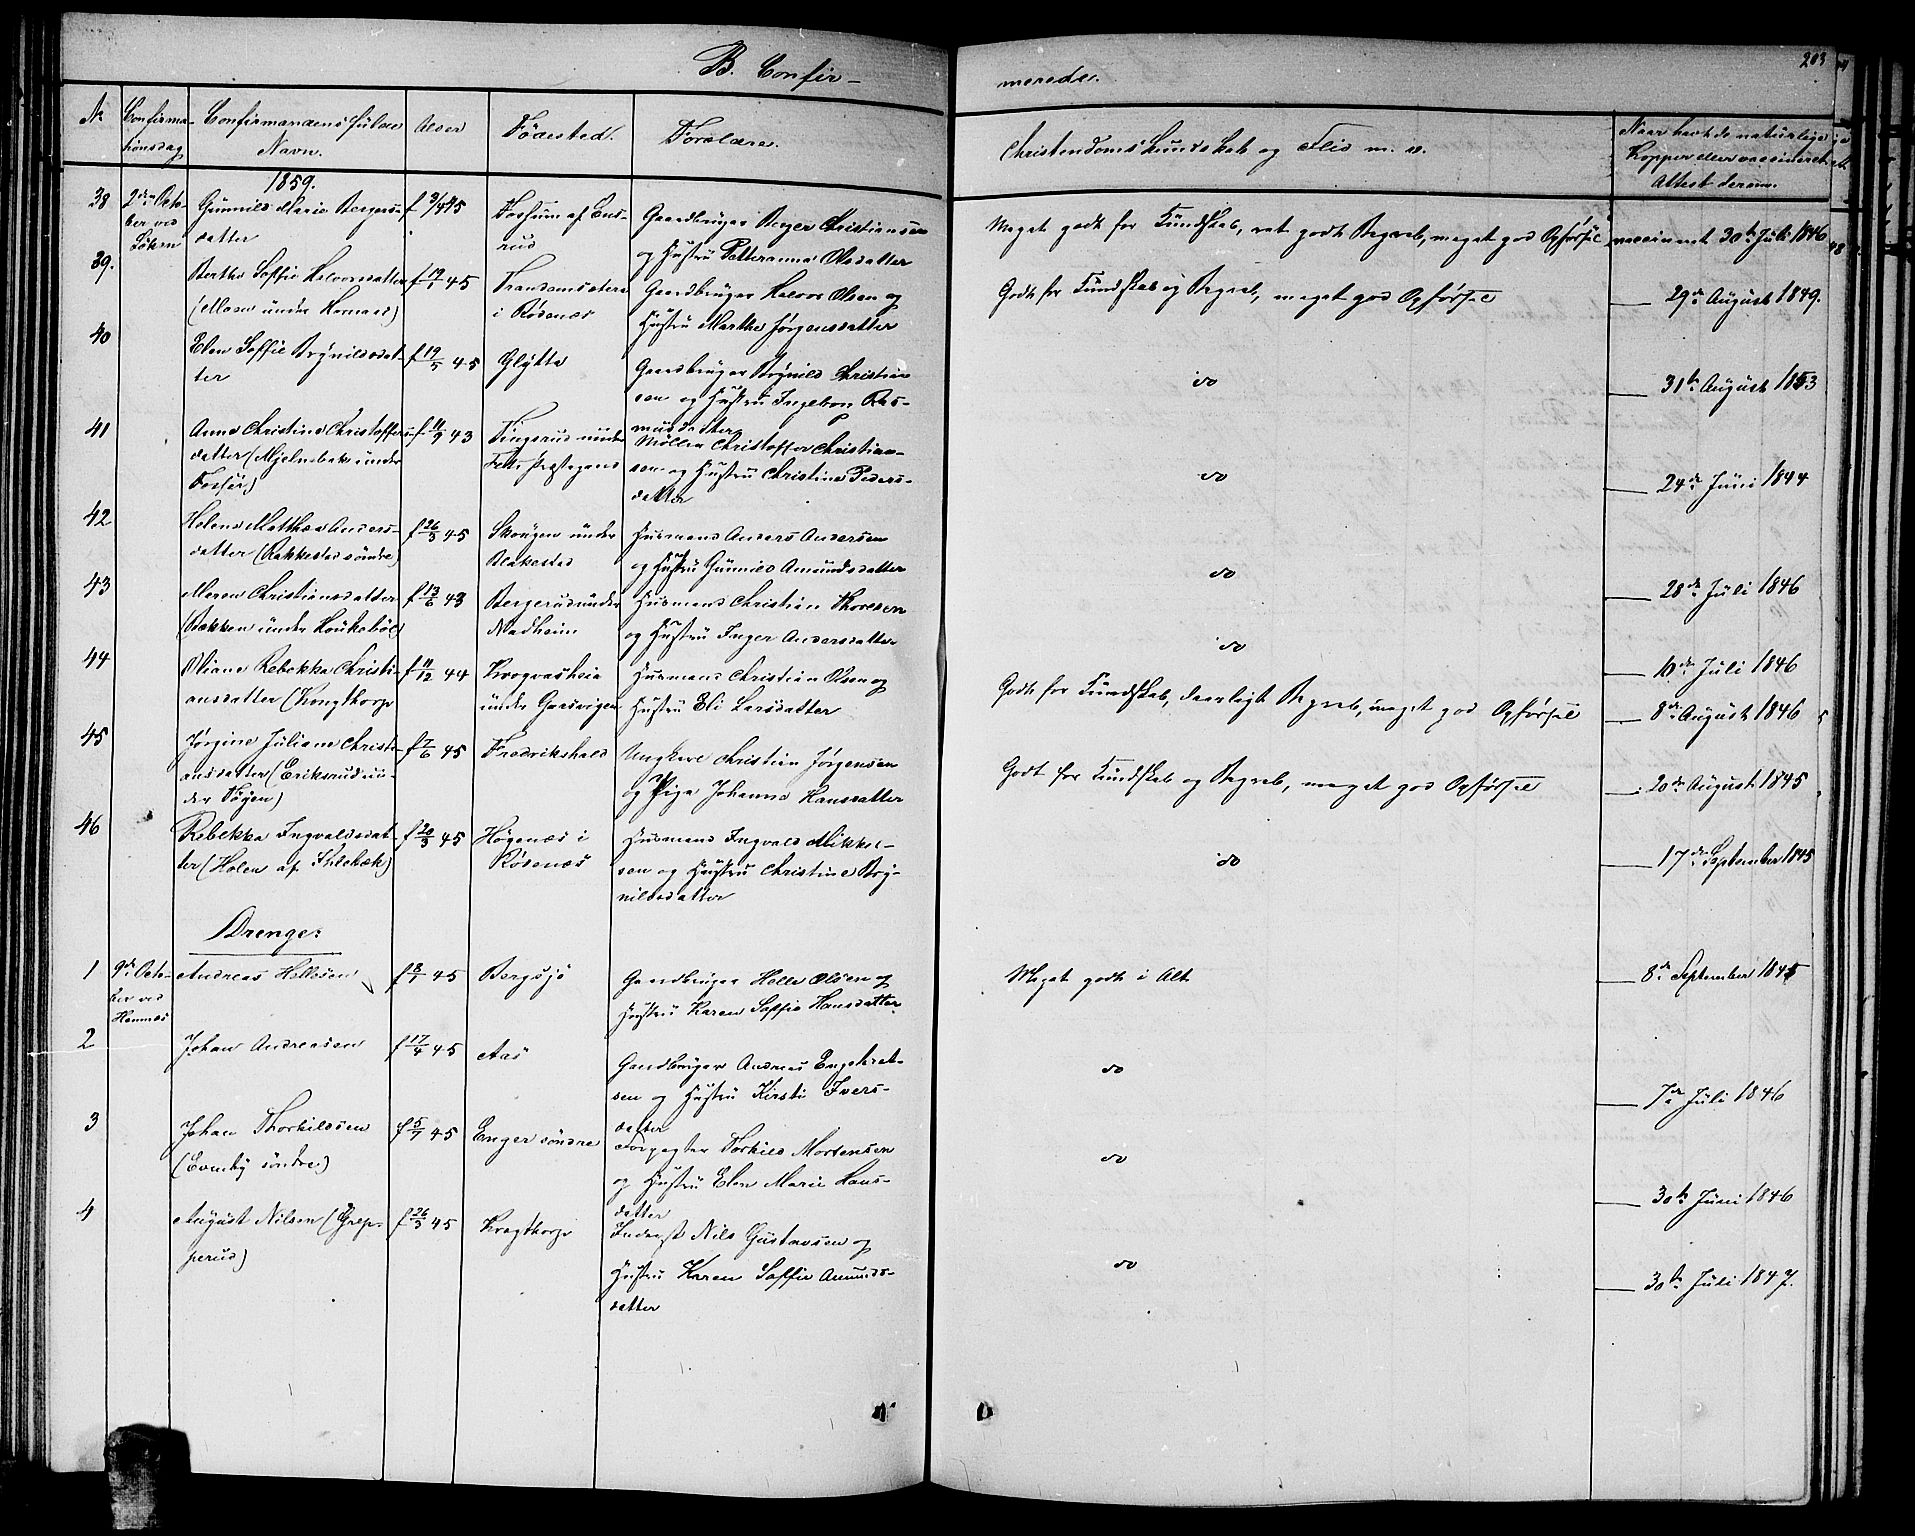 B. Confir-
merede.
203
No
Confirma-
tionsdag
Confirmandens fulde
Navn.
Alder
Födested.
Forældre.
Christendomskundskab og Flid m. v.
Naar havt de naturlige
Kopper eller vaccineret
Attest derom.
1859.
38
2den Octo-
ber ved
Gunnild Marie Bergers-
datter
Gaardbruger Berger Christiansen
og Hustru Petteranna Olsdatter
Meget godt for Kundskab, ret godt Begreb, meget god Opførsel
vaccineret 30te Juli 1846
39.
Berthe Soffie Halvorsdatter
(Moen under Hemnes)
f 19/1 45
i Rödenæs
Gaardbruger Halvor Olsen og
Hustru Marthe Jørgensdatter
Godt for Kundskab og Begreb, meget god Opførsel
29de August 1849.
40
Elen Soffie Brynildsdat-
ter
f 19/5 45
Glytte
Gaardbruger Brynild Christian
sen og Hustru Ingebor Ras-
musdatter
do
31te August 1853
41
Anna Christina Christoffers-
datter (Mjelnebak under
f 11/9 43
Tingsrud under
Möller Christoffer Christian-
sen og Hustru Christina Peders-
datter
do
24de Juni 1844
42
Helene Matthea Anders-
datter (Rakkestad söndre)
f 26/5 45
Skougen under
Blakestad
Husmand Anders Andersen
og Hustru Gunnild Amundsdatter
do
28de Juli 1846
43
Maren Christiansdatter
(Bakken under Houkeböl)
f 13/6 43
Bergerud under
Nadheim
Husmand Christian Thoresen
og Hustru Inger Andersdatter
do
10de Juli 1846
44
Oliane Rebekka Christi-
ansdatter (Kragthorp
f 11/12 44
under Gaasvigen
Husmand Christian Olsen og
Hustru Eli Larsdatter
Godt for Kundskab, daarligt Begreb, meget god Opførsel
8de August 1846
45
Jørgine Juliane Christi-
ansdatter (Eriksrud un-
der Töyen)
f 7/6 45
Fredrikshald
Ungkarl Christian Jørgensen
og Pige Johanna Hansdatter
Godt for Kundskab og Begreb, meget god Opførsel
20de August 1845
46
Rebekka Ingvaldsdat-
ter (Holen af Ihlebæk)
f 20/3 45
Högenæs i
Rödenæs
Husmand Ingvald Mikkel-
sen og Hustru Christine Bry-
nildsdatter
do
17de September 1845
Drenge:
1
9de Octo-
ber ved
Hemnes
Andreas Hellesen
f 8/7 45
Bergsjö
Gaardbruger Helle Olsen og
Hustru Karen Soffie Hansdatter
Meget godt i Alt
8de September 1845
2
Johan Andreasen
f 17/4 45
Aas
Gaardbruger Andreas Engebret-
sen og Hustru Kirsti Ivers-
datter
do
7de Juli 1846
3
Johan Thorkildsen
(Evenby söndre)
f 5/7 45
Enger söndre
Forpagter Torkild Mortensen
og Hustru Elen Marie Hans-
datter
do
30te Juni 1846
4
August Nilsen (Grep-
perud)
f 26/3 45
Kragthorp
Inderst Nils Gustavsen og
Hustru Karen Soffie Amunds-
datter
do
30te Juli 1847.